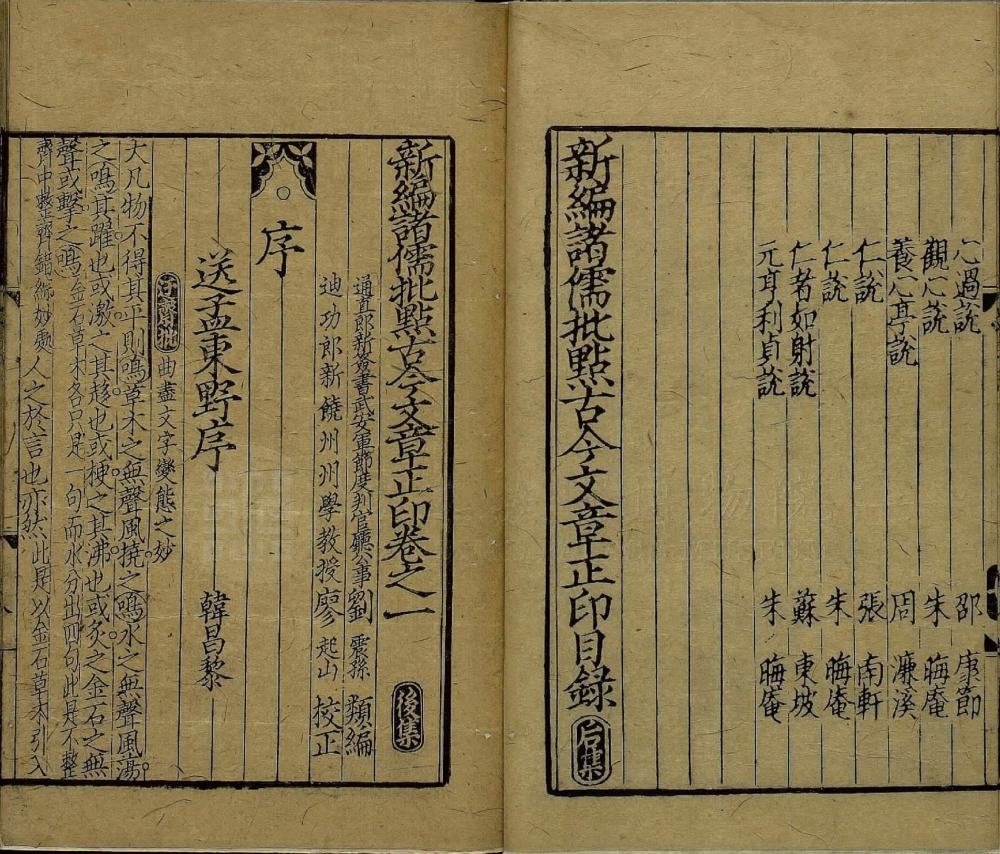 心過說 邵康節
觀心說 朱晦庵
養心亭說 周濂溪
仁說 張南軒
仁說 朱晦庵
仁者如射說 蘇東坡
元亨利貞說 朱晦庵
新編諸儒批點古今文章正印目録 后集
新編諸儒批點古今文章正印卷之一 後集
通直郎新簽書武安軍節度判官廳公事劉震孫類編
迪功郎新饒州州學教授廖起山校正
序
送孟東野序 韓昌黎
批 曲盡文字變態之妙
大凡物不得其平則鳴草木之無聲風撓之鳴水之無聲風蕩
之鳴其躍也或激之其趍也或梗之其沸也或炙之金石之無
聲或擊之鳴金石草木各只是一句而水分出四句此是不整
齊中整齊錯綜妙處人之於言也亦然此是以金石草木引入